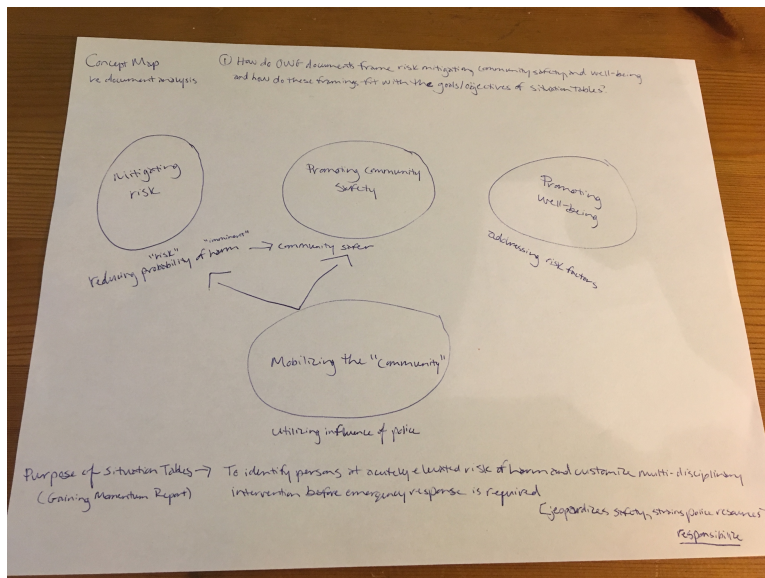 Concept Map
re document analysis
① How do OWG documents frame risk mitigating, community safety, and well-being
and how do these framings fit with the goals/objectives of Situation Tables?
Mitigating
risk
Promoting Community
Safety
Promoting
Well-being
"risk" "imminent"
reducing probability of harm → community safer
addressing risk factors
Mobilizing the "Community"
utilizing influence of police
Purpose of Situation Tables → To identify persons at acutely elevated risk of harm and customize multi-disciplinary
(Gaining Momentum Report) intervention before emergency response is required
[jeopardizes safety, strains police resources
responsibilize